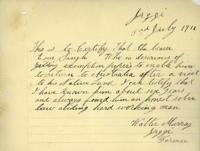 Jeggi
3rd July 1911
This is to Certify That the bearer
Esau Singh Who is desirous of
getting exemption papers to enable him
to return to Australia after a visit
to his Native Land. I can Certify That
I have known him about six years
and always found him an honest sober
law abiding hard working man
Walter Murray
Jeggi
Farmer